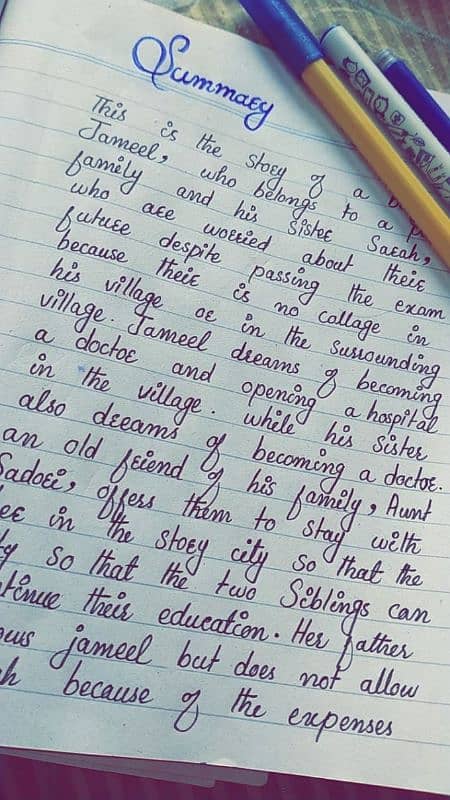 Summary
This is the story of a
Jameel, who belongs to a
family and his sister Sarah,
who are worried about their
future despite passing the exam
because their is no callage in
his village or in the surrounding
village. Jameel dreams of becoming
a doctor and opening a hospital
in the village. while his sister
also dreams of becoming a doctor.
an old friend of his family, Aunt
Sadori, offers them to stay with
in the story city so that the
so that the two Siblings can
their education. Her father
jameel but does not allow
because of the expenses